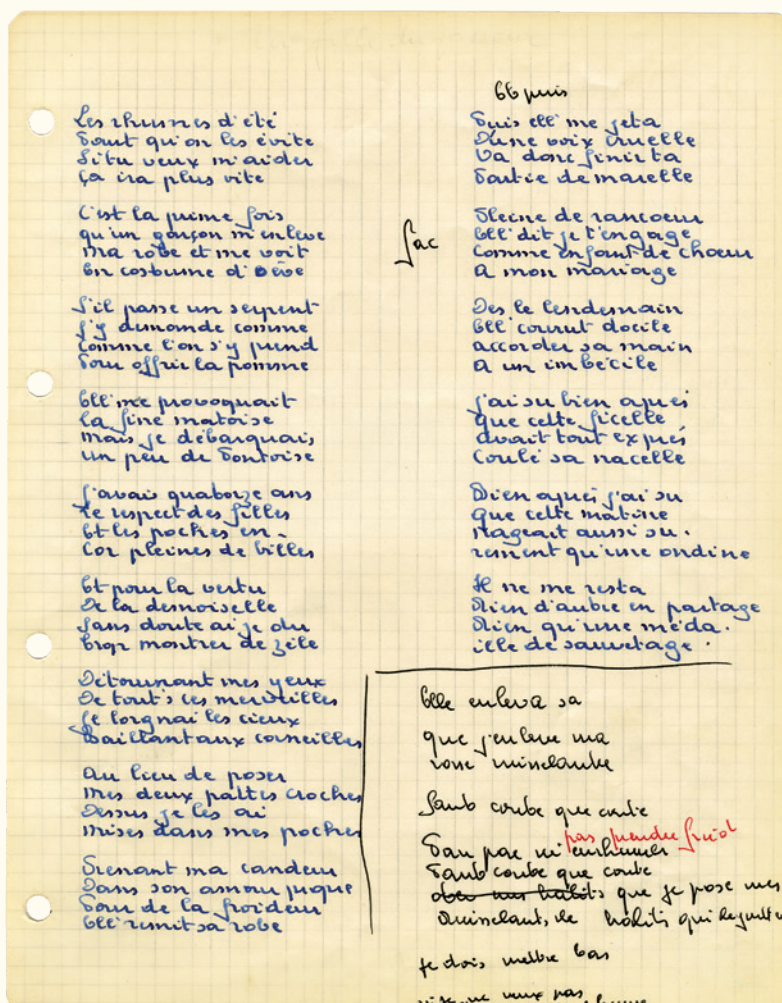 Les rhumes d'été
Faut qu'on les évite
Si tu veux m'aider
Ça ira plus vite
C'est la prime fois
qu'un garçon m'enlève
ma robe et me voit
En costume d'Eve
S'il passe un serpent
J'y demande comme
comme l'on s'y prend
Pour offrir la pomme
Ell' me provoquait
la fine matoise
mais je débarquais
un peu de Pontoise
J'avais quatorze ans
le respect des filles
Et les poches en-
Cor pleines de billes
Et pour la vertu
De la demoiselle
Sans doute ai je du
trop montrer de zèle
Détournant mes yeux
De tout's ces merveilles
Je lorgnai les cieux
Baillant aux corneilles
Au lieu de poser
mes deux pattes croches
Dessus je les ai
mises dans mes poches
Prenant ma candeur
Dans son amour puque
Pour de la froideur
Ell' remit sa robe
Et puis
Puis ell' me jeta
D'une voix cruelle
Va donc finir ta
Partie de marelle
fac
Pleine de rancoeur
Ell' dit je t'engage
Comme enfant de choeur
A mon mariage
Des le lendemain
Ell' courut docile
accorder sa main
A un imbécile
J'ai su bien après
que cette ficelle
avait tout exprès
Coulé sa nacelle
Bien après j'ai su
que cette matine
nageait aussi su.
rement qu'une ondine
Il ne me resta
Rien d'autre en partage
Rien qu'une méda.
ille de sauvetage.
Elle enleva sa
que j'enleve ma
rosse ruisselante
Faut coute que coute
pas prendre froid
Pour pas m'enrhumer
Faut coute que coute
des mes habits que je pose mes
Ruisselants, de habits qui
Je dois mettre bas
ne veux pas